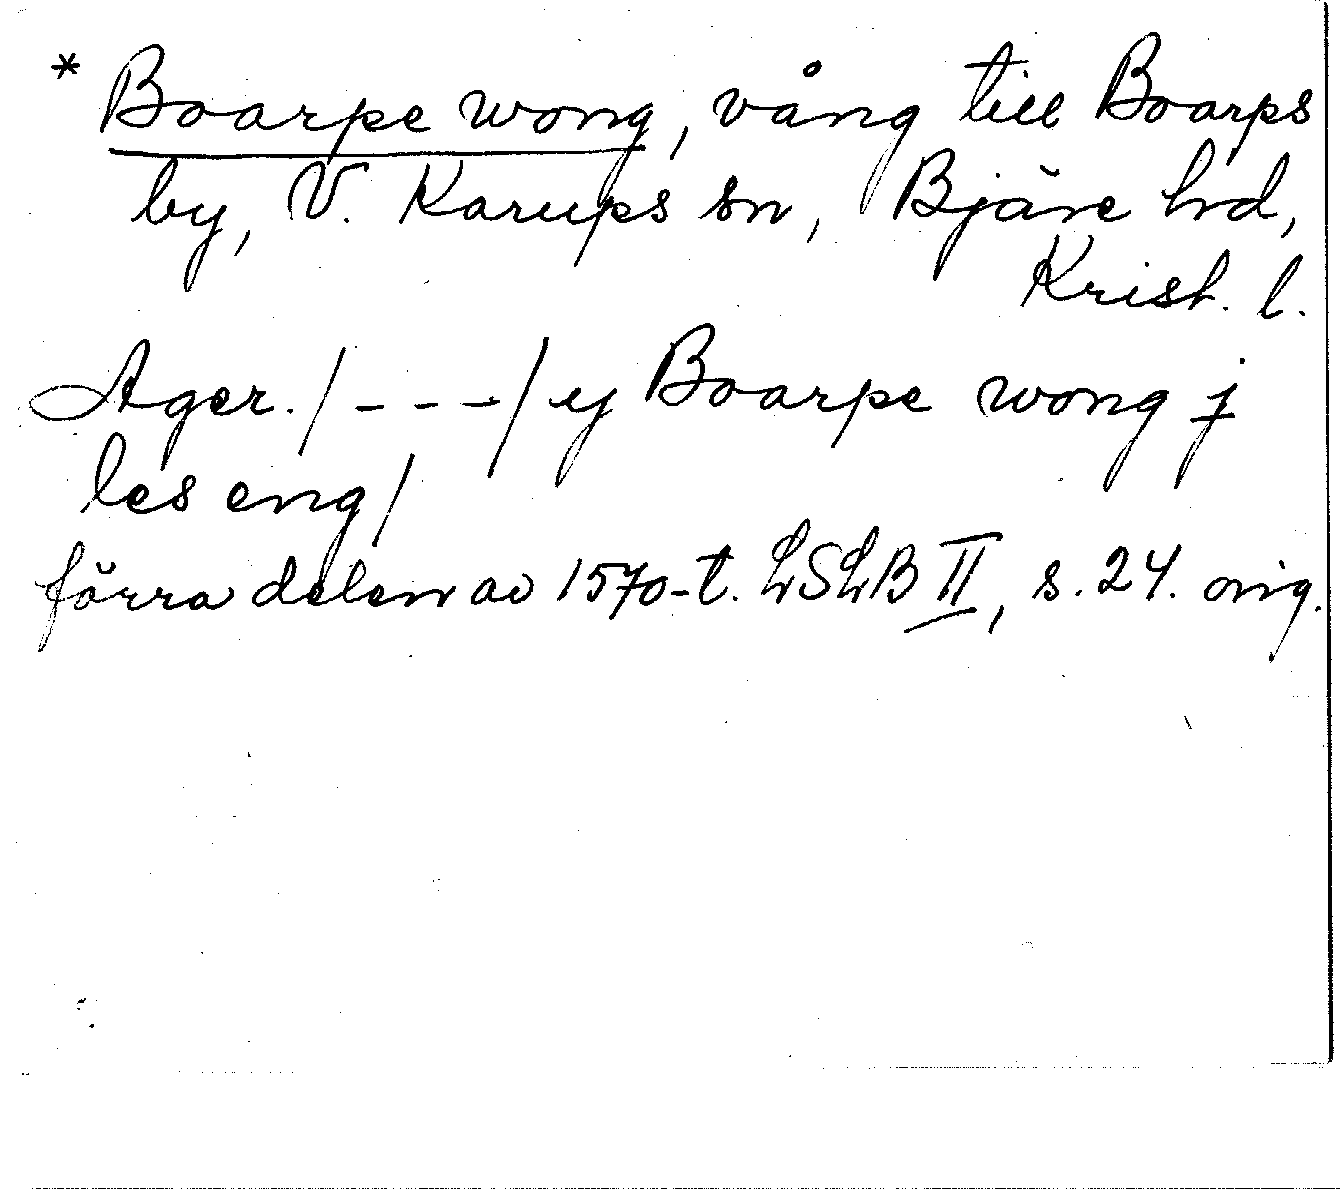 * Boarpe wong, vång till Boarps
by, V. Karups sn, Bjäre hd,
Krist. l.
Ager. /---/ ej Boarpe wong j
les eng/
förra delen av 1570-t. LSLB II, s. 24. orig.